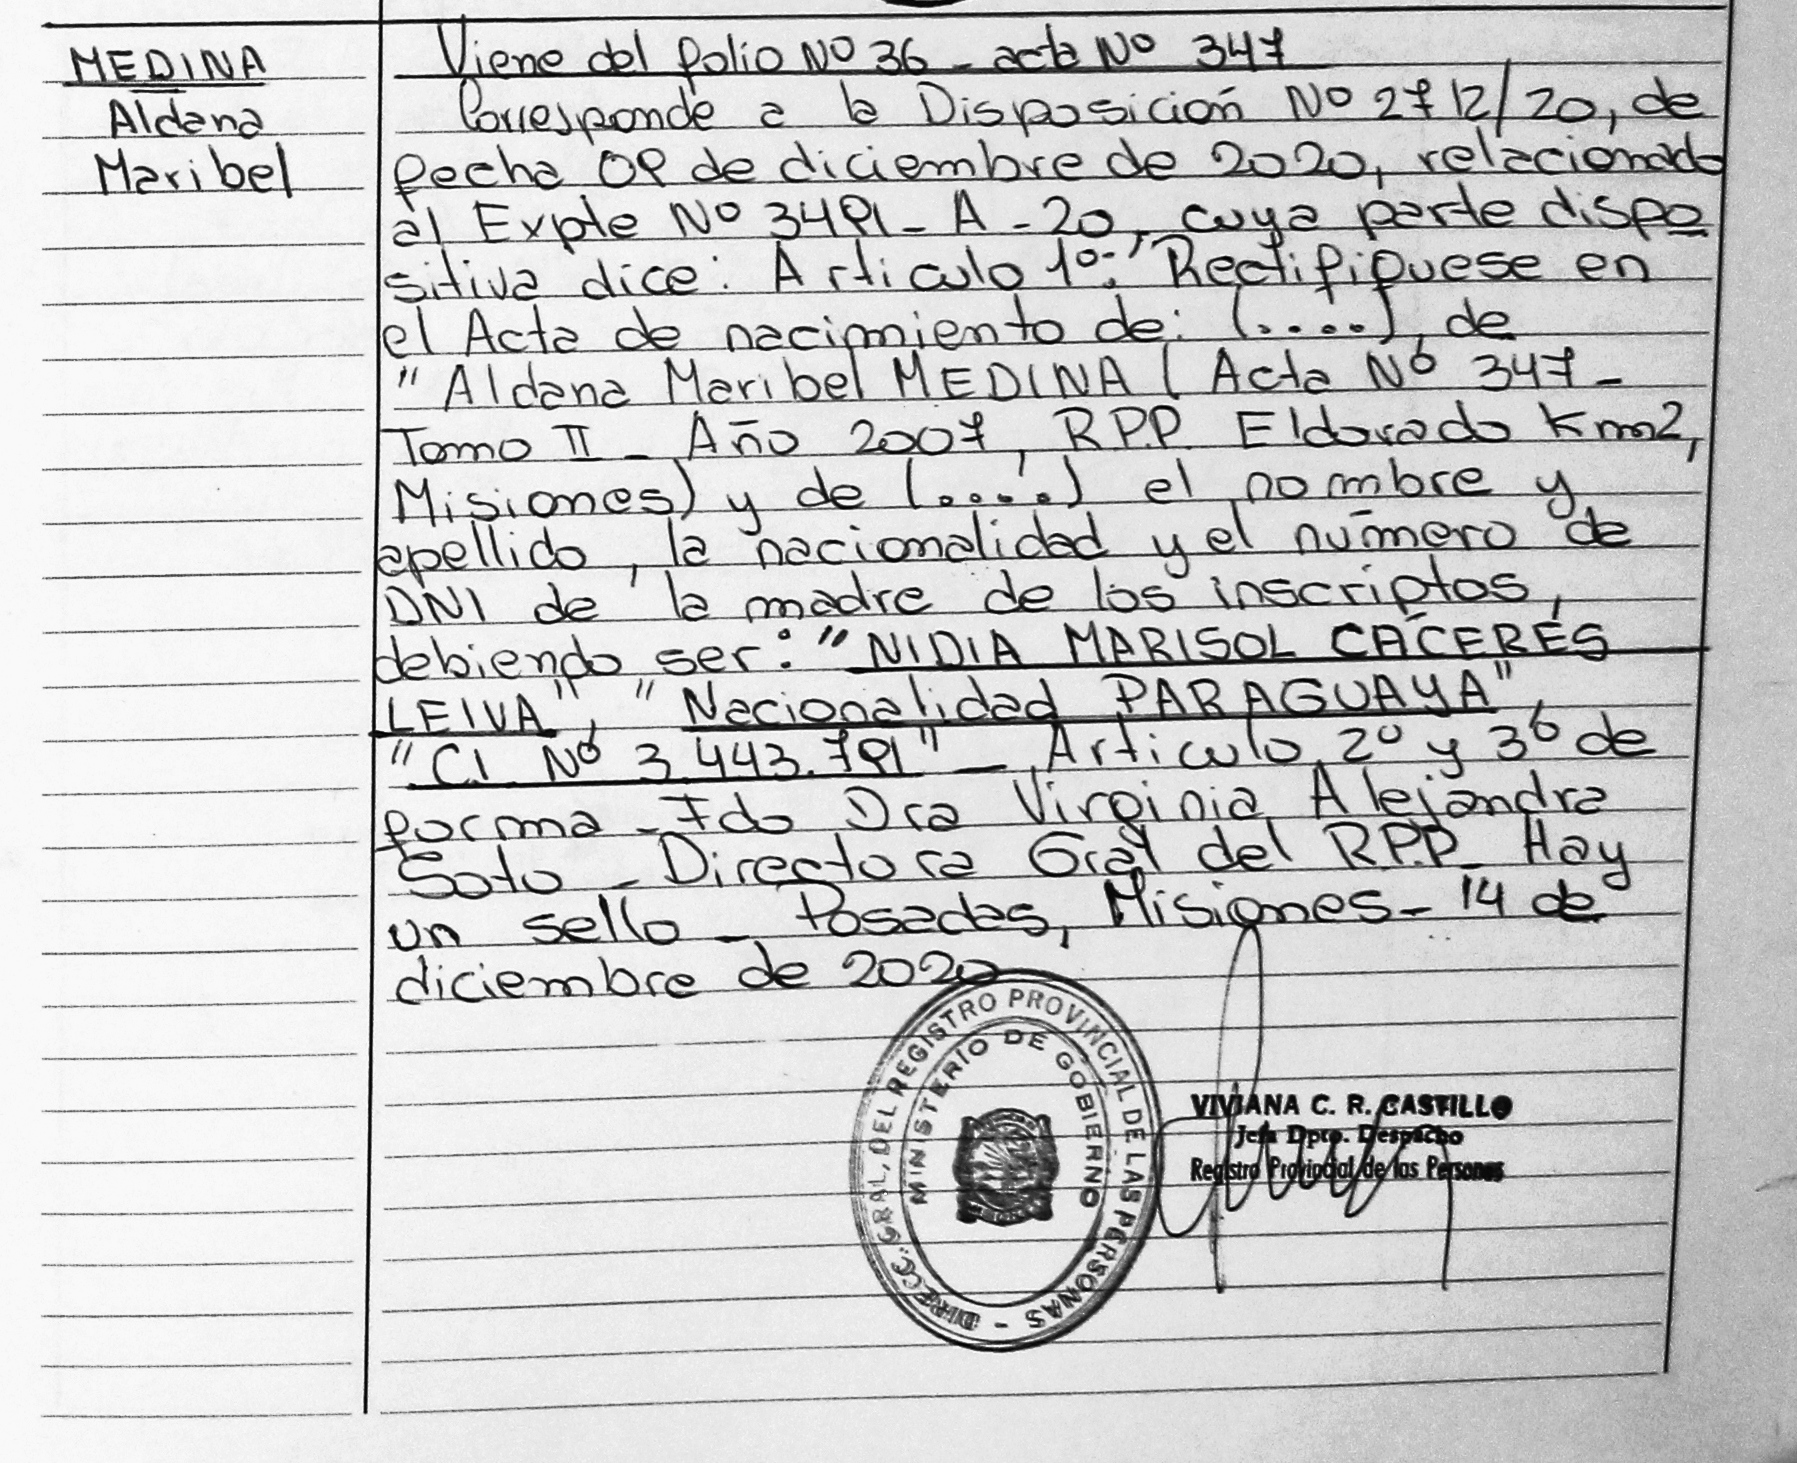 MEDINA
Aldana
Maribel
Viene del folio Nº 36 - acta Nº 347
Corresponde a la Disposición Nº 2712/20, de
fecha 09 de diciembre de 2020, relacionado
al Expte Nº 3491 - A - 20, cuya parte dispo
sitiva dice: Articulo 1º: "Rectifiquese en
el Acta de nacimiento de: (....), de
"Aldana Maribel MEDINA (Acta Nº 347 -
Tomo II - Año 2007, R.P.P. Eldorado Km2,
Misiones) y de (.....) el nombre y
apellido, la nacionalidad y el número de
DNI de la madre de los inscriptos,
debiendo ser: "NIDIA MARISOL CÁCERES
LEIVA", "Nacionalidad PARAGUAYA",
"C.I. Nº 3.443.791" - Articulo 2º y 3º de
forma - Fdo Dra Virginia Alejandra
Soto - Directora Gral del R.P.P. Hay
un sello - Posadas, Misiones - 14 de
diciembre de 2020
DIRECC. GRAL. DEL REGISTRO PROVINCIAL DE LAS PERSONAS -
MINISTERIO DE GOBIERNO
VIVIANA C. R. CASTILLO
Jefa Dpto. Despacho
Registro Provincial de las Personas